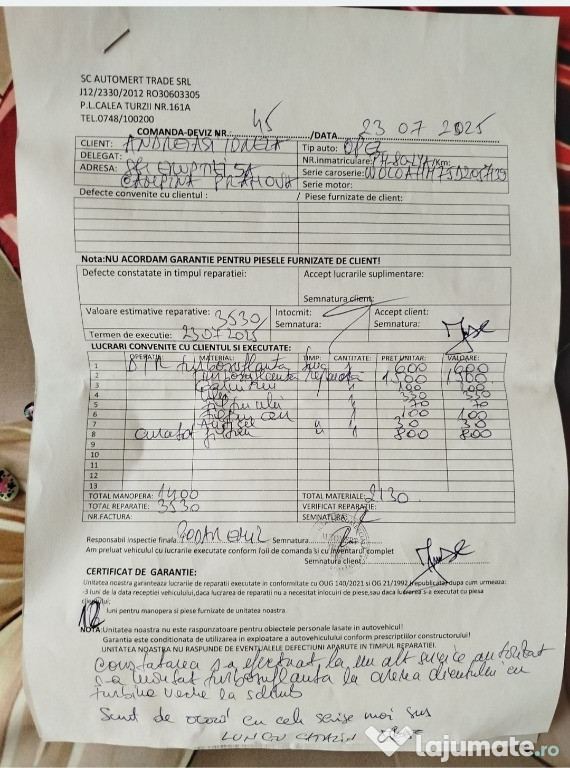 SC AUTOMERT TRADE SRL
J12/2330/2012 RO30603305
P.L.CALEA TURZII NR.161A
TEL.0748/100200
COMANDA-DEVIZ NR. 45 /DATA 23 07 2025
CLIENT: Tip auto: OPEL
DELEGAT: NR.inmatriculare: /Km:
ADRESA: Serie caroserie:
CAMPINA PRAHOVA Serie motor:
Defecte convenite cu clientul : / Piese furnizate de client:
Nota:NU ACORDAM GARANTIE PENTRU PIESELE FURNIZATE DE CLIENT!
Defecte constatate in timpul reparatiei: Accept lucrarile suplimentare:
Semnatura client:
Valoare estimative reparative: 3530 Intocmit: Accept client:
Semnatura: Semnatura:
Termen de executie: 23 07 2025
LUCRARI CONVENITE CU CLIENTUL SI EXECUTATE:
OPERATIE: MATERIAL: TIMP: CANTITATE: PRET UNITAR: VALOARE:
1 turbosuflanta 1 600 600
2 turbosuflanta 1
3 100 100
4 ulei 1
5 filtru ulei 1 70 70
6 1 100 100
7 1 30 30
8 800 800
9
10
11
12
13
TOTAL MANOPERA: 1400 TOTAL MATERIALE: 2130
TOTAL REPARATIE: 3530 VERIFICAT REPARATIE:
NR.FACTURA: SEMNATURA:
Responsabil inspectie finala Semnatura
Am preluat vehiculul cu lucrarile executate conform foii de comanda si cu inventarul complet
Semnatura client
CERTIFICAT DE GARANTIE:
Unitatea noastra garanteaza lucrarile de reparatii executate in conformitate cu OUG 140/2021 si OG 21/1992,republicata dupa cum urmeaza:
-3 luni de la data receptiei vehiculului,daca lucrarea de reparatii nu a necesitat inlocuiri de piese,sau daca lucrarea s-a executat cu piesa
clientului;
12 luni pentru manopera si piese furnizate de unitatea noastra.
NOTA:Unitatea noastra nu este raspunzatoare pentru obiectele personale lasate in autovehicul!
Garantia este conditionata de utilizarea in exploatare a autovehiculului conform prescriptiilor constructorului!
UNITATEA NOASTRA NU RASPUNDE DE EVENTUALELE DEFECTIUNI APARUTE IN TIMPUL REPARATIEI.
Constatarea s-a efectuat la un alt service autorizat
s-a montat turbosuflanta la cererea clientului cu
turbina veche la schimb
Sunt de acord cu cele scrise mai sus
CATALIN
lajumate.ro